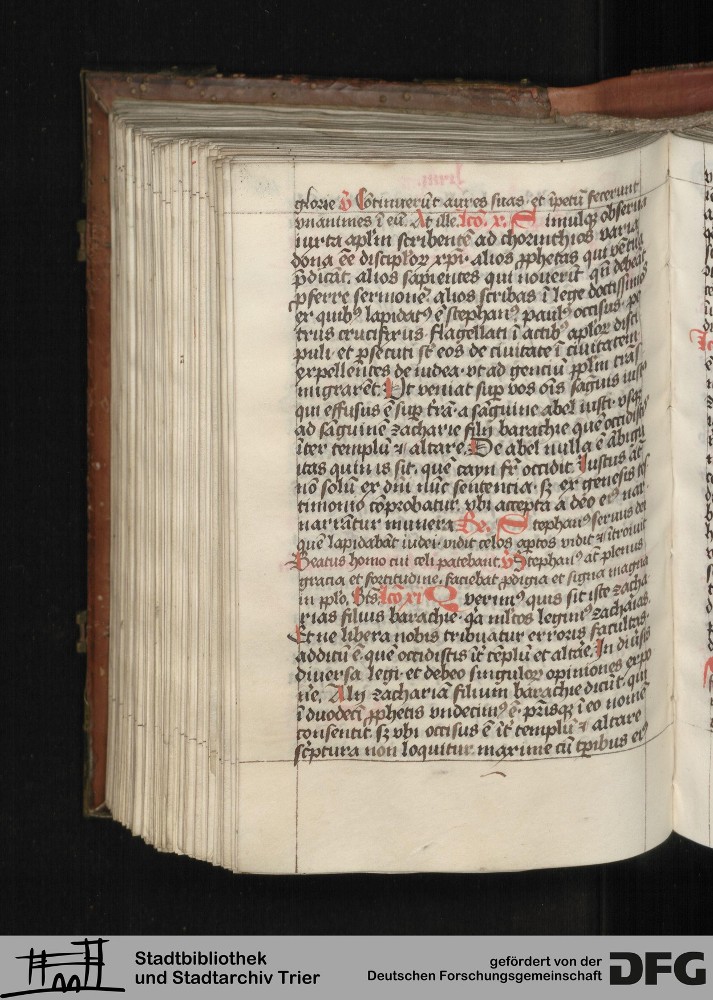 glorie ꝟ Cōtinuerūt aures suas · et īpetū fecerunt
vnanimes ī eū. At ille. lcō. x. Simulq̄ obserua
iuxta apl̄m scribentē ad chorinthios varia
dona eē discipl̓oꝝ xp̄i · alios ꝓphetas qui vētura
p̄dicāt. alios sapientes qui nouerīt qn̄ debeāt
ꝓferre sermonē. alios scribas ī lege doctissimos
ex quibꝰ lapidatꝰ ē stephanꝰ. paulꝰ occisus · pe
trus crucifixus · flagellati ī actibꝰ aploꝝ disci
puli · et ꝑsecuti st̄ eos de ciuitate ī ciuitatem
expellentes de iudea · vt ad gentiū ppl̄m trās
migrarēt. Ut veniat suꝑ vos oīs saguis iustꝰ
qui effusus ē suꝑ t̄rā · a sāguine abel iusti · vsq̄
ad sāguinē zacharie filij barachie quē occidistis
īter templū ⁊ altare. De abel nulla ē ābigu
itas quin is sit · quē cayn fr̄ occidit. Iustus āt
nō solū ex dn̄i nūc sentencia · sꝫ ex genesis tes
timonio cōprobatur. vbi accepta a deo eiꝰ nar
narrātur munera Re. Stephanꝰ seruus dei
quē lapidabāt iudei · vidit celos aꝑtos vidit ⁊ ītroiuit
Beatus homo cui celi patebant. ꝟ Stephanꝰ āt plenus
gracia et fortitudine. faciebat ꝓdigia et signa magna
in pplo. Bt̄s. lcō xi Querimꝰ quis sit iste zacha
rias filius barachie · q̄a ml̄tos legimꝰ zacharias.
Et ne libera nobis tribuatur erroris facultas.
additū ē · quē occidistis īt̄ tēplū et altāe. In diūsis
diuersa legi · et debeo singuloꝝ opiniones expo
n̄e. Alij zachariā filium barachie dicūt. qui
ī duodecī ꝓphetis vndecimꝰ ē · pr̄isq̄ ī eo nomē
consentit. sꝫ vbi occisus ē īt̄ templū ⁊ altare
sc̄ptura non loquitur. maxime cū tp̄ribus eiꝰ
Stadtbibliothek
und Stadtarchiv Trier
gefördert von der
Deutschen Forschungsgemeinschaft DFG